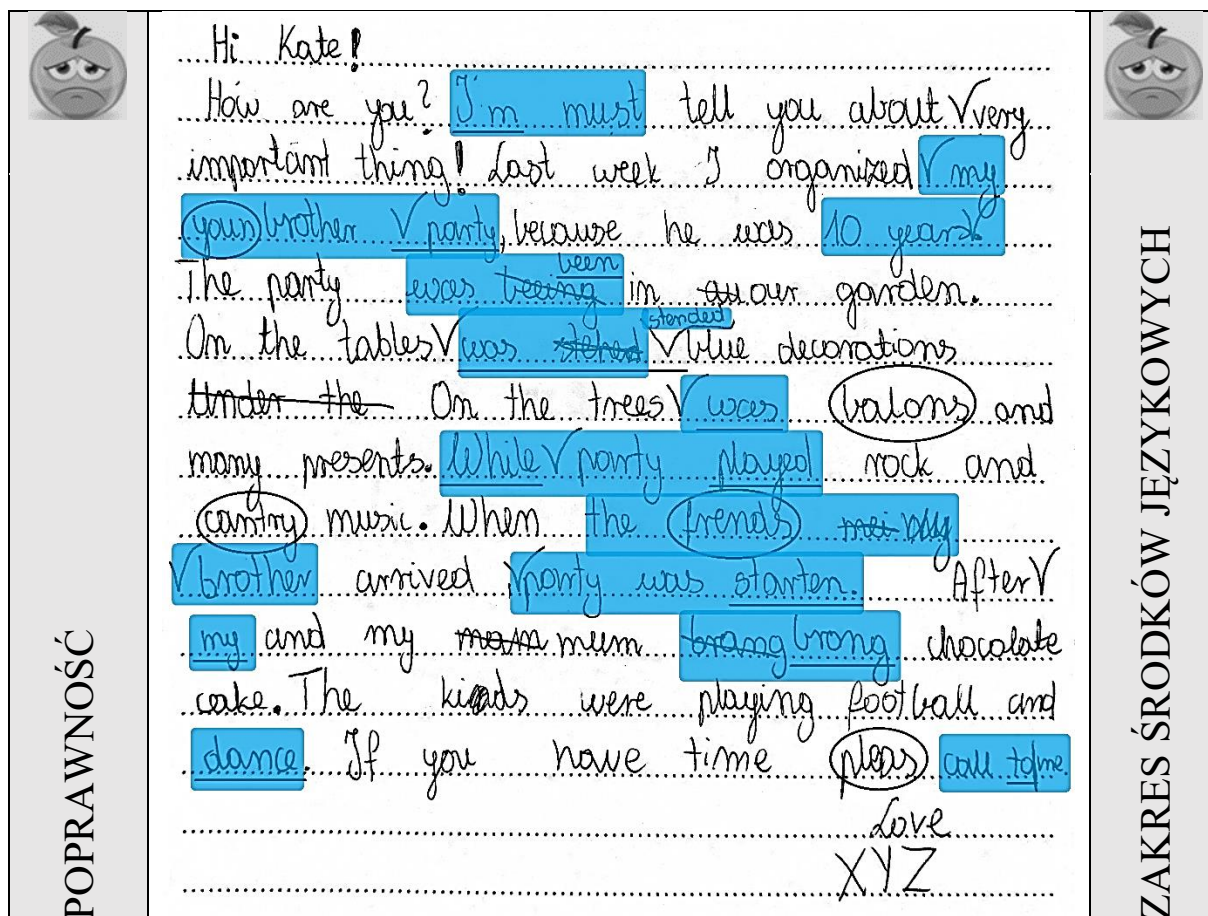 POPRAWNOŚĆ
Hi Kate!
How are you? I'm must tell you about V very
important thing! Last week I organized V my
youn brother V party, because he was 10 years V
The party was beeing been in our garden.
On the tables V was stended V blue decorations
Under the On the trees V was balons and
many presents. While V party played rock and
cantry music. When the frends my
V brother arrived V party was starten. After V
my and my mum brang brong chocolate
cake. The kids were playing football and
dance. If you have time pleas call to me.
Love
XYZ
ZAKRES ŚRODKÓW JĘZYKOWYCH